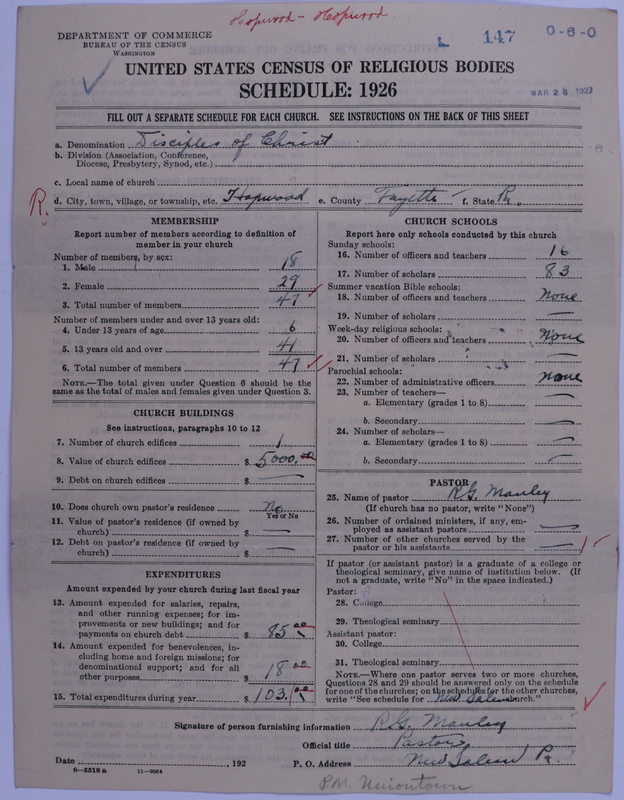 Hopwood - Hopwood
DEPARTMENT OF COMMERCE
BUREAU OF THE CENSUS
WASHINGTON
147
0-6-0
MAR 28 1927
UNITED STATES CENSUS OF RELIGIOUS BODIES
SCHEDULE: 1926
FILL OUT A SEPARATE SCHEDULE FOR EACH CHURCH. SEE INSTRUCTIONS ON THE BACK OF THIS SHEET
a. Denomination Disciples of Christ
b. Division (Association, Conference,
Diocese, Presbytery, Synod, etc.)
c. Local name of church
R. d. City, town, village, or township, etc. Hopwood e. County Fayette f. State Pa.
MEMBERSHIP
Report number of members according to definition of
member in your church
Number of members, by sex:
1. Male 18
2. Female 29
3. Total number of members 47
Number of members under and over 13 years old:
4. Under 13 years of age 6
5. 13 years old and over 41
6. Total number of members 47
NOTE.—The total given under Question 6 should be the
same as the total of males and females given under Question 3.
CHURCH BUILDINGS
See instructions, paragraphs 10 to 12
7. Number of church edifices 1
8. Value of church edifices $ 5000.00
9. Debt on church edifices $ —
10. Does church own pastor's residence No
Yes or No
11. Value of pastor's residence (if owned by
church) $ —
12. Debt on pastor's residence (if owned by
church) $ —
EXPENDITURES
Amount expended by your church during last fiscal year
13. Amount expended for salaries, repairs,
and other running expenses; for im-
provements or new buildings; and for
payments on church debt $ 85.00
14. Amount expended for benevolences, in-
cluding home and foreign missions; for
denominational support; and for all
other purposes $ 18.00
15. Total expenditures during year $ 103.00
CHURCH SCHOOLS
Report here only schools conducted by this church
Sunday schools:
16. Number of officers and teachers 16
17. Number of scholars 83
Summer vacation Bible schools:
18. Number of officers and teachers None
19. Number of scholars —
Week-day religious schools:
20. Number of officers and teachers None
21. Number of scholars —
Parochial schools:
22. Number of administrative officers None
23. Number of teachers—
a. Elementary (grades 1 to 8) —
b. Secondary —
24. Number of scholars—
a. Elementary (grades 1 to 8) —
b. Secondary —
PASTOR
25. Name of pastor R.G. Manley
(If church has no pastor, write "None")
26. Number of ordained ministers, if any, em-
ployed as assistant pastors —
27. Number of other churches served by the
pastor or his assistants — 1
If pastor (or assistant pastor) is a graduate of a college or
theological seminary, give name of institution below. (If
not a graduate, write "No" in the space indicated.)
Pastor:
28. College
29. Theological seminary
Assistant pastor:
30. College
31. Theological seminary
NOTE.—Where one pastor serves two or more churches,
Questions 28 and 29 should be answered only on the schedule
for one of the churches; on the schedules for the other churches,
write "See schedule for New Salem church."
Signature of person furnishing information R.G. Manley
Official title Pastor
Date , 192 P. O. Address New Salem Pa.
8—5518 a 11—9054
P.M. Uniontown